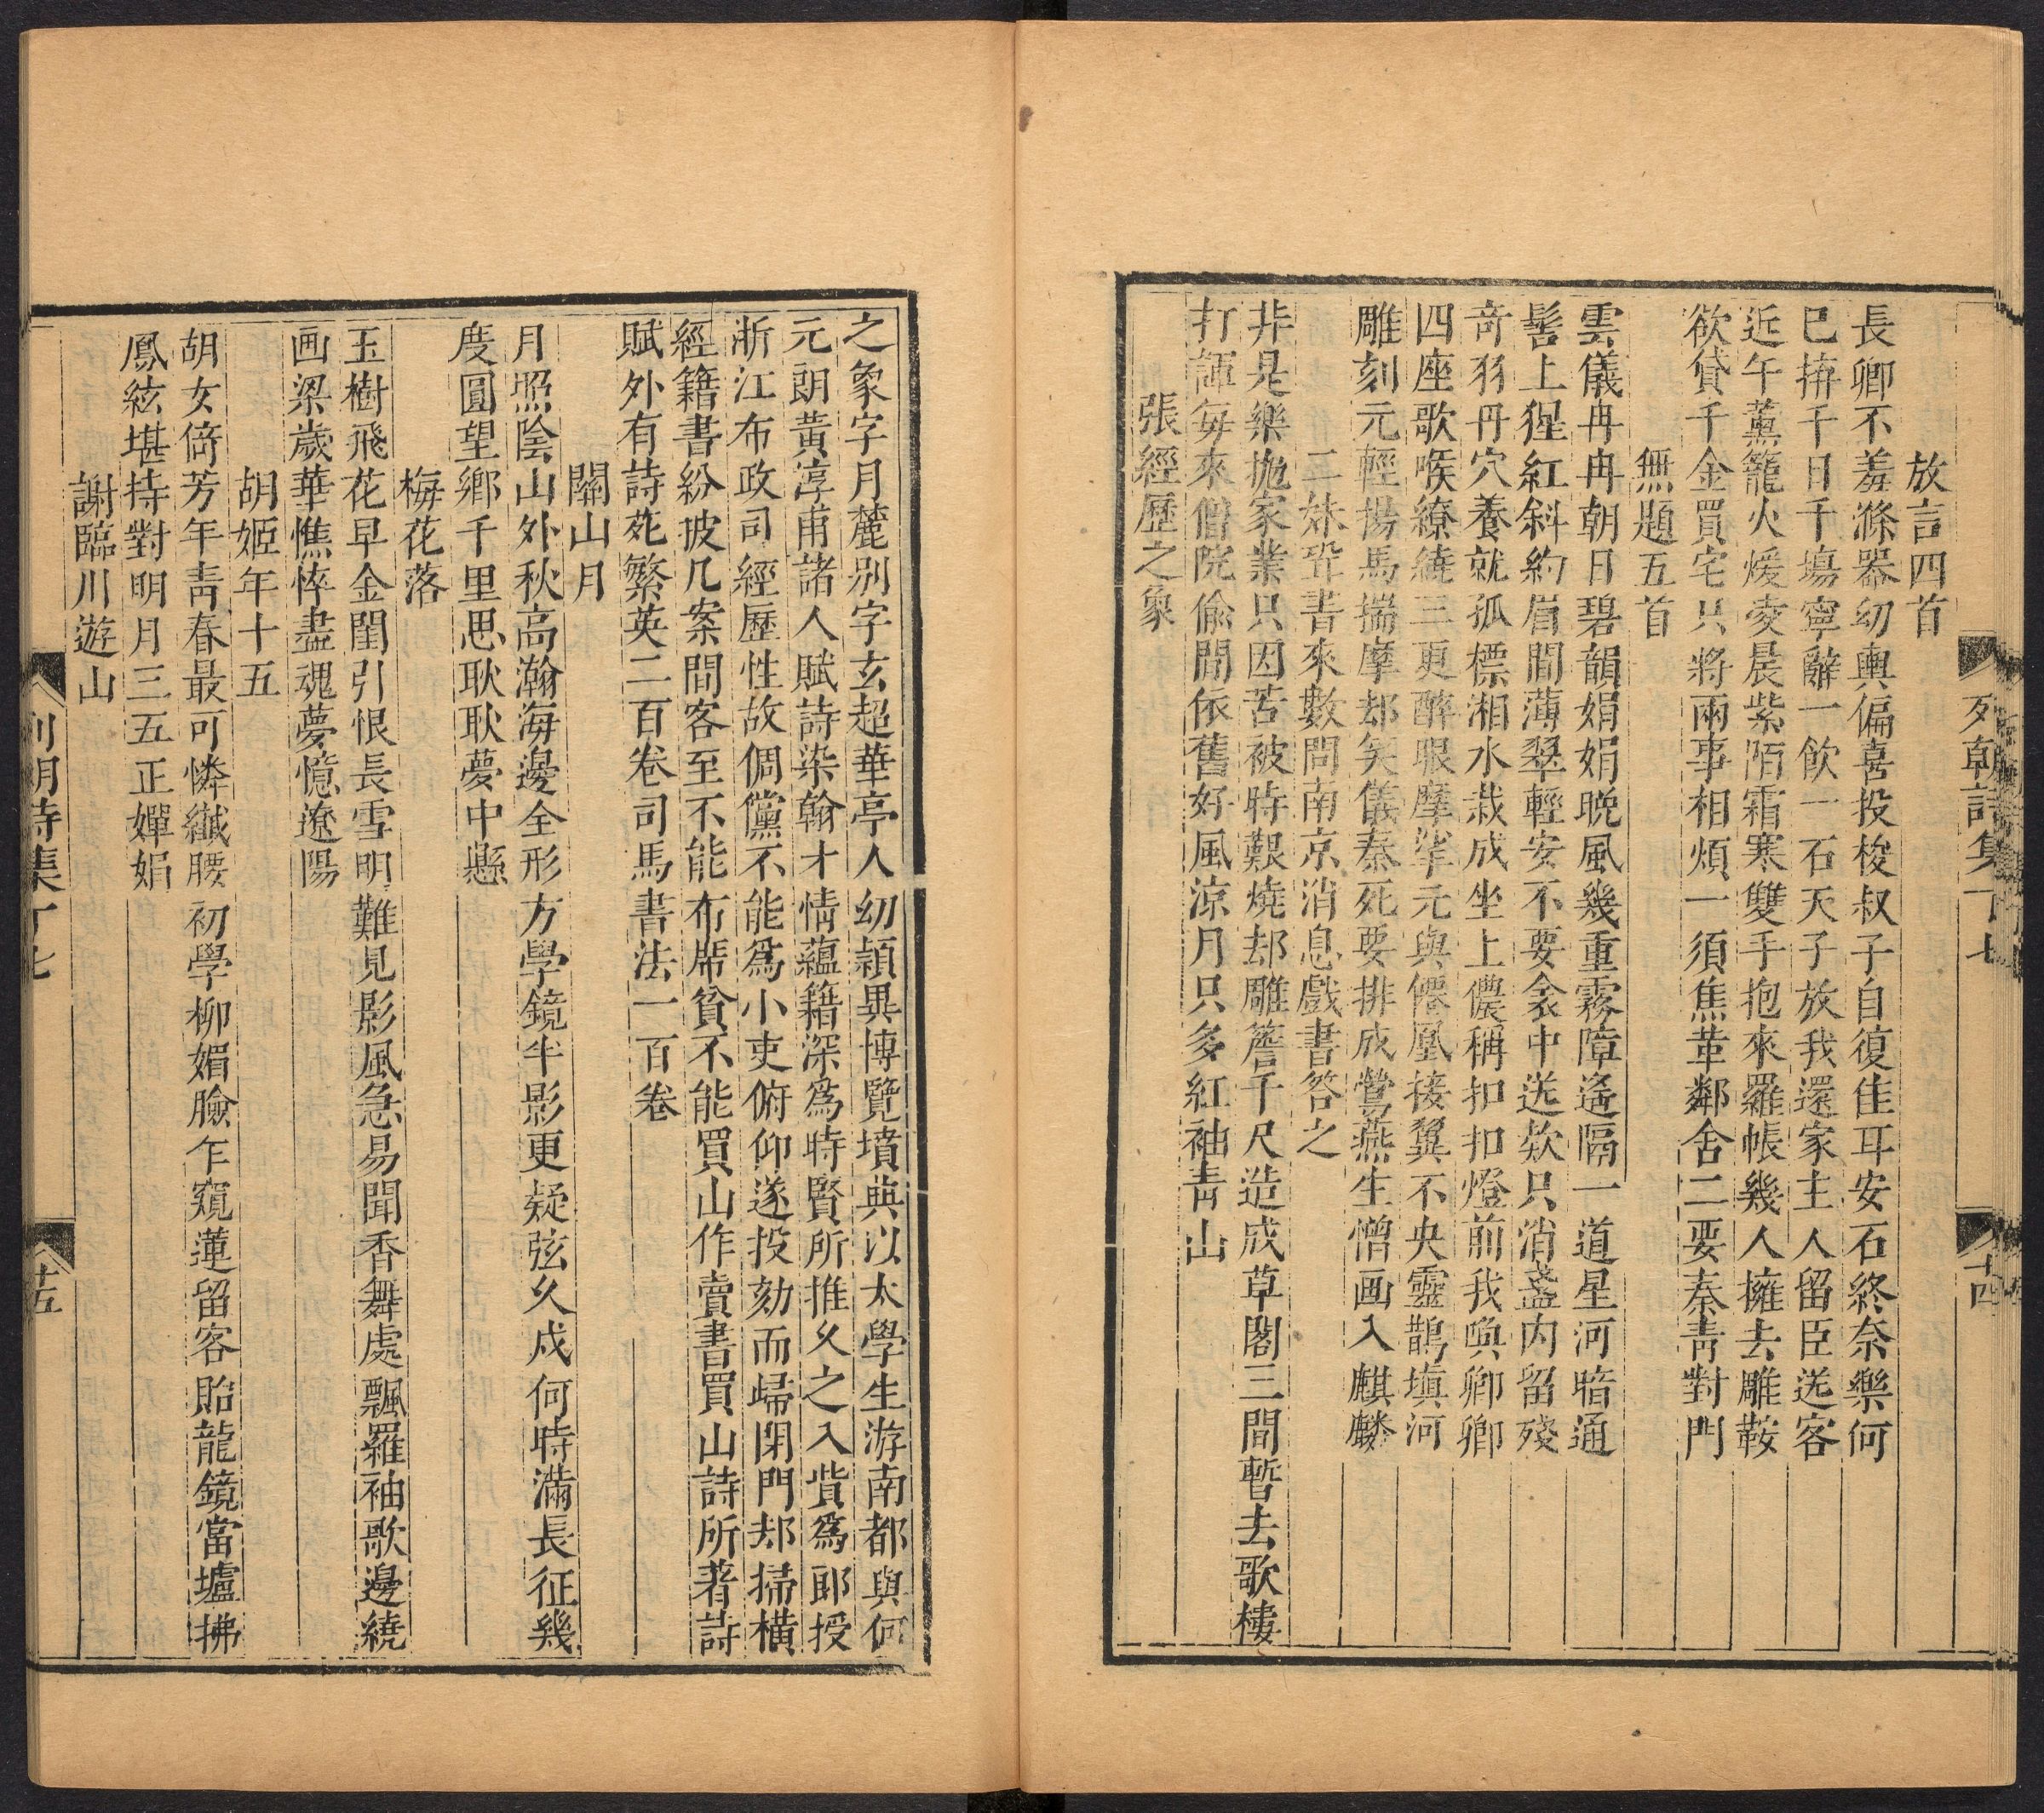 列朝詩集丁七
十四
放言四首
長卿不羞滌器幼輿偏喜投梭叔子自復佳耳安石終奈樂何
已拚千日千塲寧辭一飲一石天子放我還家主人留臣送客
近午薰籠火煖凌晨紫陌霜寒雙手抱來羅帳幾人擁去雕鞍
欲貸千金買宅只將兩事相煩一須焦革鄰舍二要秦青對門
無題五首
雲儀冉冉朝日碧韻娟娟晚風幾重霧障遙隔一道星河暗通
髻上猩紅斜約眉間薄翠輕安不要衾中送欵只消盞内留殘
奇羽丹穴養就孤標湘水栽成坐上儂稱扣扣燈前我喚卿卿
四座歌喉繚繞三更醉眼摩挲元與僊凰接翼不央靈鵲塡河
雕刻元輕揚馬揣摩却笑儀秦死要排成鶯燕生憎画入麒麟
二妹䂖書來數問南京消息戲書答之
非是樂抛家業只因苦被時艱燒却雕簷千尺造成草閣三間暫去歌樓
打諢每來僧院偸閒依舊好風涼月只多紅袖靑山
張經歷之象
之象字月麓别字玄超華亭人幼穎異博覽墳典以太學生游南都與何
元朗黃淳甫諸人賦詩染翰才情蘊籍深爲時賢所推久之入貲爲郎授
浙江布政司經歷性故倜儻不能爲小吏俯仰遂投劾而歸閉門却掃橫
經籍書紛披几案間客至不能布席貧不能買山作賣書買山詩所著詩
賦外有詩苑繁英二百卷司馬書法一百卷
關山月
月照陰山外秋高瀚海邊全形方學鏡半影更疑弦久戍何時滿長征幾
度圓望鄉千里思耿耿夢中懸
梅花落
玉樹飛花早金閨引恨長雪明難見影風急易聞香舞處飄羅袖歌邊繞
画梁歲華憔悴盡魂夢憶遼陽
胡姬年十五
胡女倚芳年靑春最可憐纖腰初學柳媚臉乍窺蓮留客貽龍鏡當壚拂
鳳絃堪持對明月三五正嬋娟
謝臨川遊山
列朝詩集丁七
十五